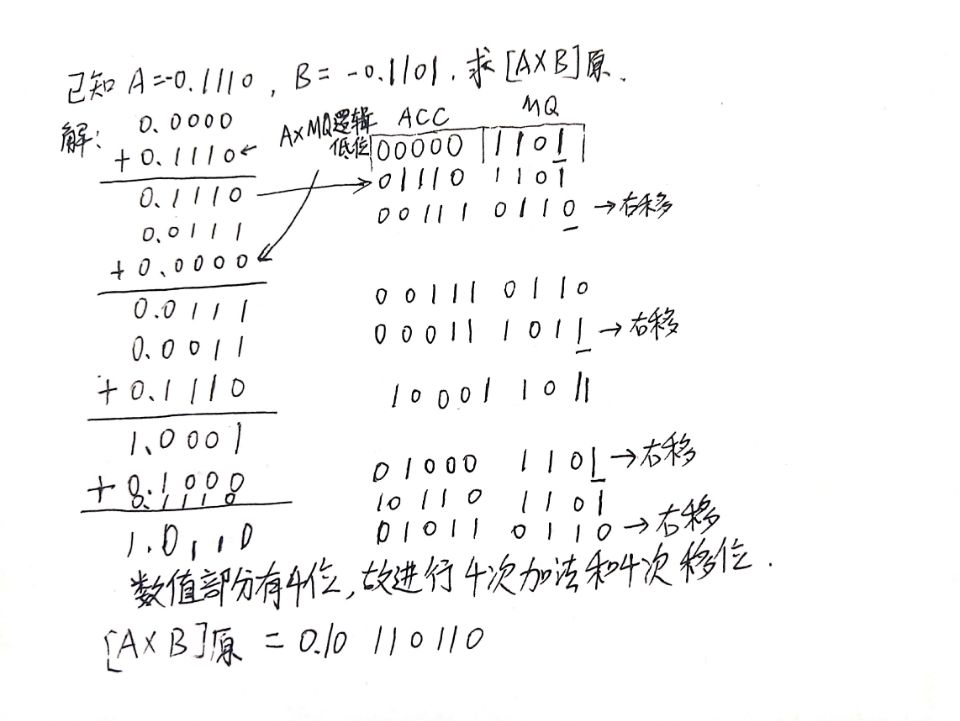 已知 A=-0.1110, B= -0.1101. 求[A×B]原.
解:
0.0000
+0.1110
0.1110
0.0111
+0.0000
0.0111
0.0011
+0.1110
1.0001
+0.1000
0.1110
1.0110
A×MQ逻辑
低位
ACC MQ
00000 1101
01110 1101
00111 0110 →右移
00111 0110
00011 1011 →右移
10001 1011
01000 1101 →右移
10110 1101
01011 0110 →右移
数值部分有4位,故进行4次加法和4次移位.
[A×B]原 = 0.10 110110